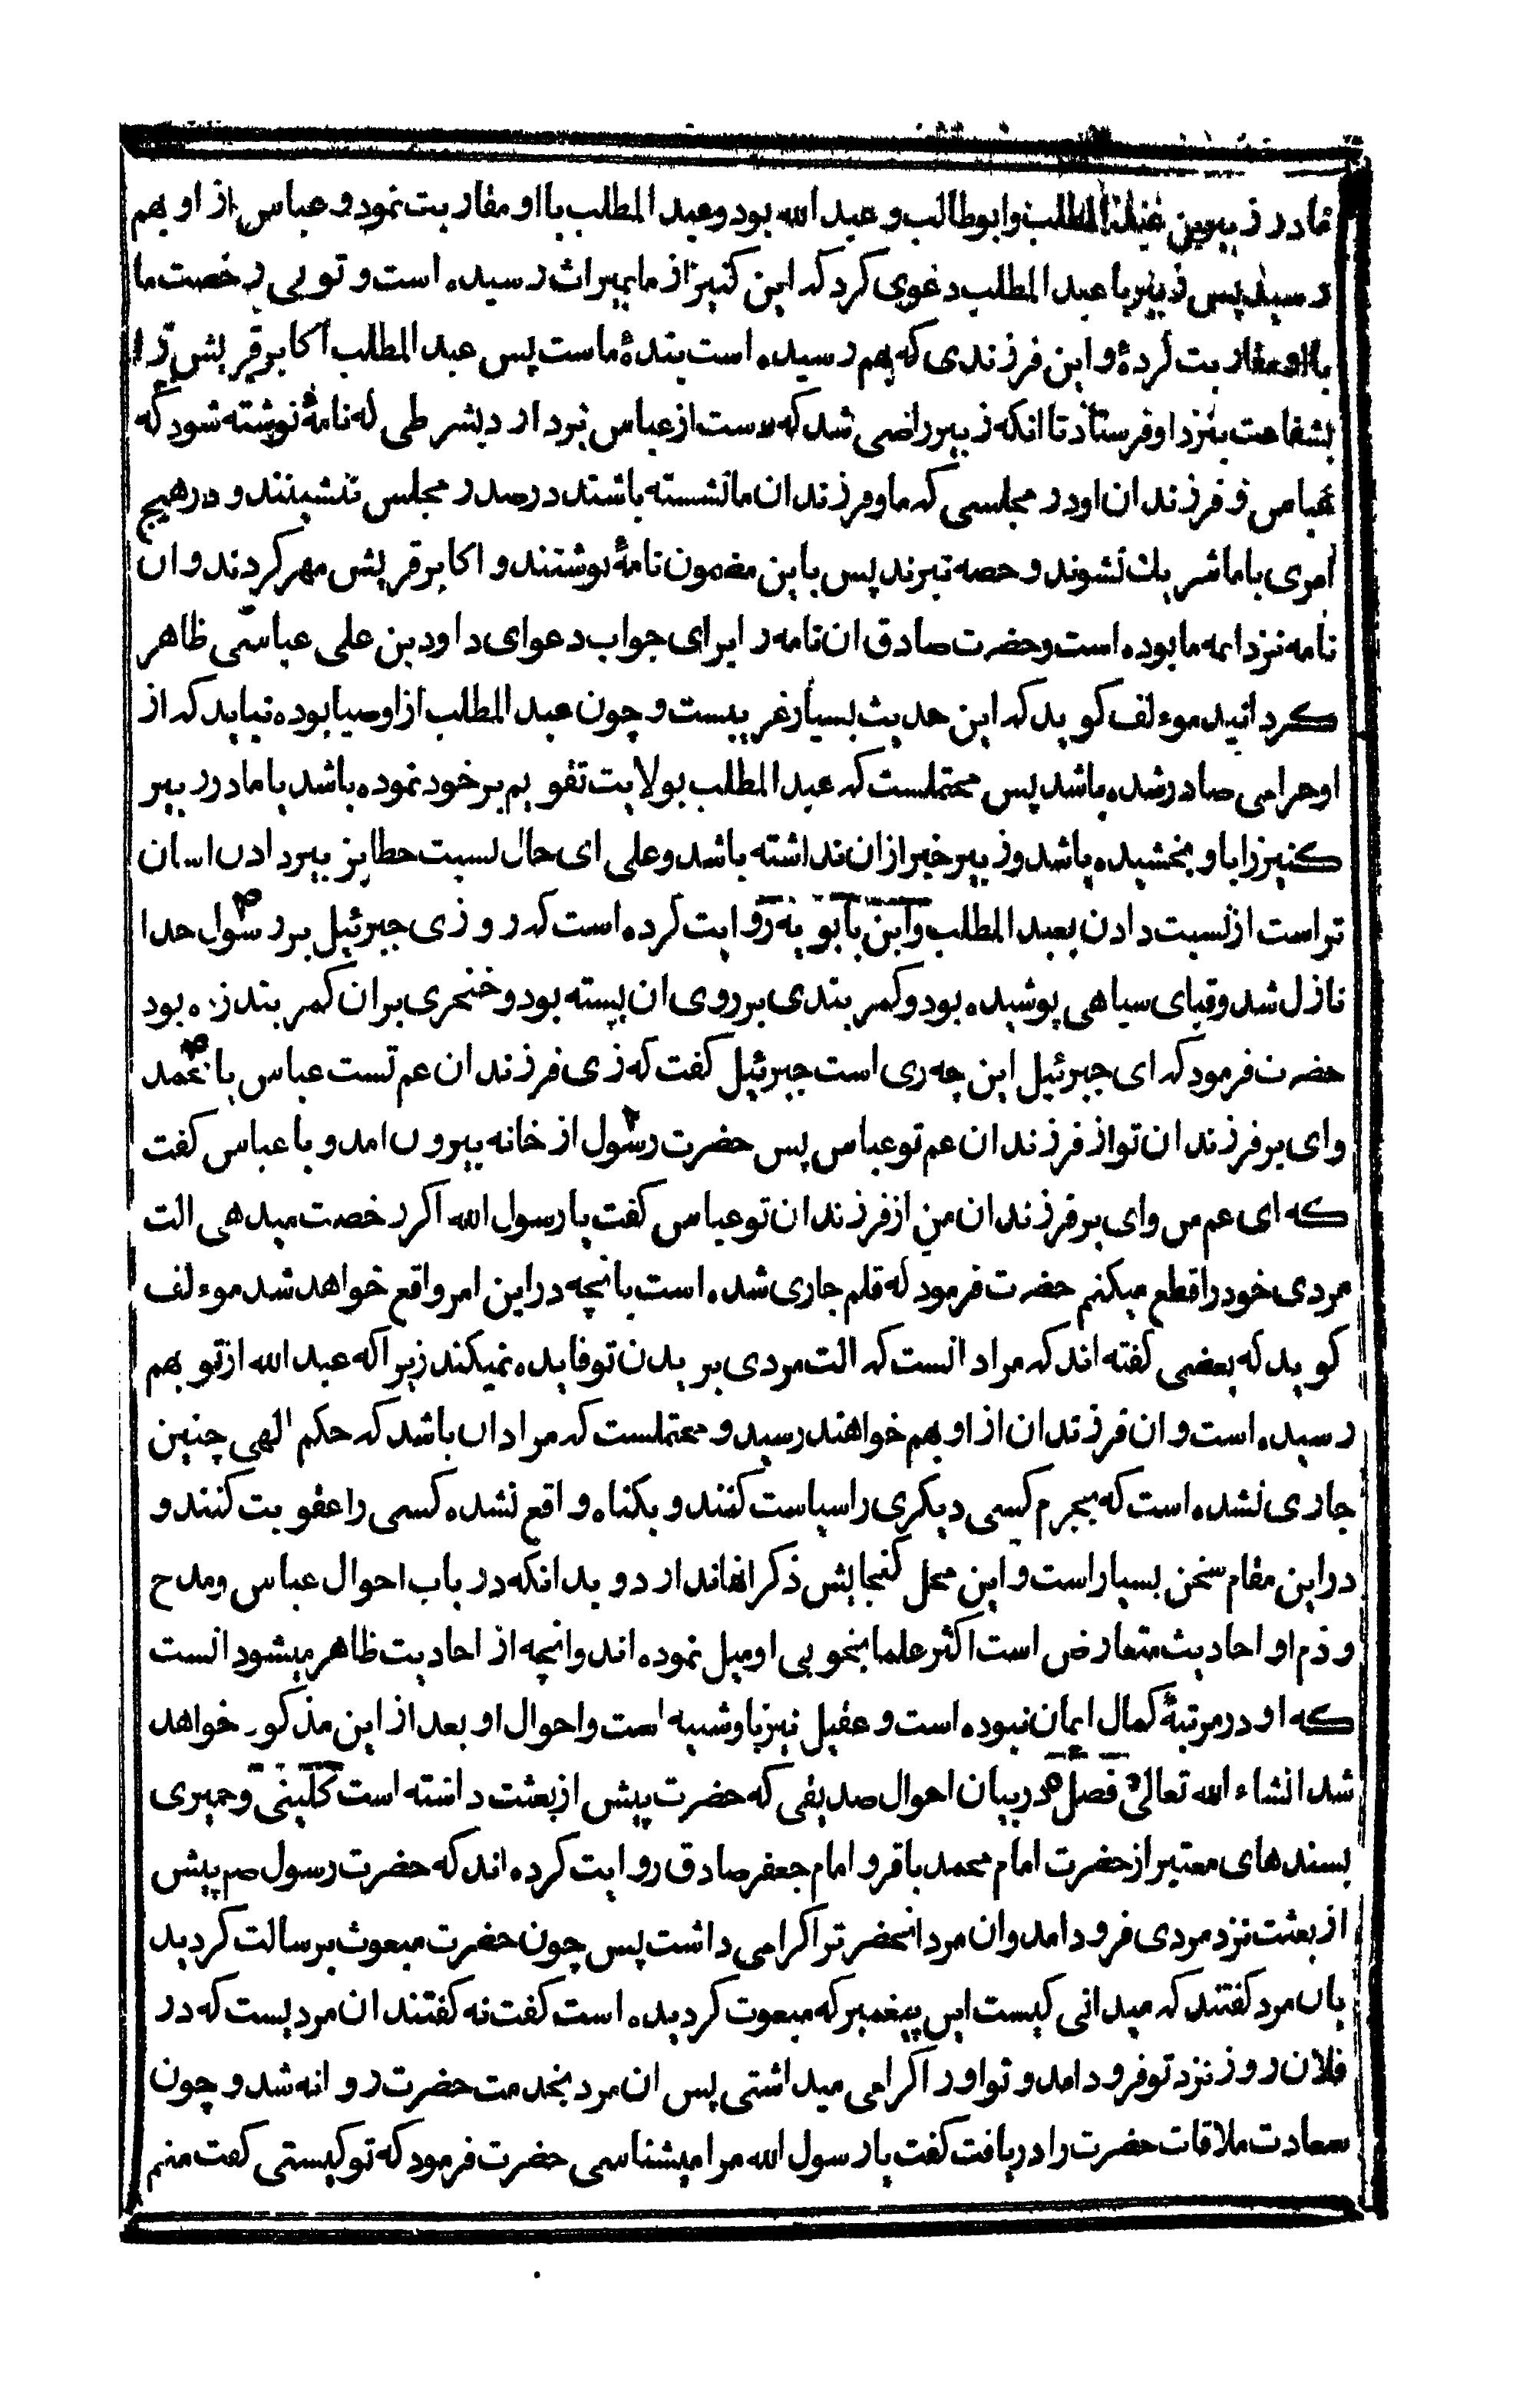 مادر زبیر بن عبد المطلب و ابوطالب و عبد الله بود و عبد المطلب با او مقاربت نمود و عباس از او بهم
رسید پس زبیر با عبد المطلب دعوی کرد که این کنیز از ما بمیراث رسیده است و تو بی رخصت ما
با او مقاربت کردۀ و این فرزندی که بهم رسیده است بندۀ ماست پس عبد المطلب اکابر قریش را
بشفاعت بنزد او فرستاد تا انکه زبیر راضی شد که دست از عباس بردارد بشرطی که نامۀ نوشته شود که
عباس و فرزندان او در مجلسی که ما و فرزندان ما نشسته باشند در صدر مجلس ننشینند و در هیچ
امری با ما شریك نشوند و حصه نبرند پس باین مضمون نامۀ نوشتند و اکابر قریش مهر کردند و ان
نامه نزد ایمه ما بوده است و حضرت صادق ان نامه را برای جواب دعوای داود بن علی عباسی ظاهر
کردانید موءلف کوید که این حدیث بسیار غریبست و چون عبد المطلب از اوصیا بوده نباید که از
او حرامی صادر شده باشد پس محتملست که عبد المطلب بولایت تقویم بر خود نموده باشد یا مادر زبیر
کنیز را باو بخشیده باشد و زبیر خبر از ان نداشته باشد و علی ای حال نسبت خطا بزبیر دادن اسان
تر است از نسبت دادن بعبد المطلب و ابن بابویه روایت کرده است که روزی جبرئیل بر رسول خدا ص
نازل شد و قبای سیاهی پوشیده بود و کمربندی بر روی ان بسته بود و خنجری بر ان کمربند زده بود
حضرت فرمود که ای جبرئیل این چه زی است جبرئیل کفت که زی فرزندان عم تست عباس یا محمد ص
وای بر فرزندان تو از فرزندان عم تو عباس پس حضرت رسول از خانه بیرون امد و با عباس کفت
که ای عم من وای بر فرزندان من از فرزندان تو عباس کفت یا رسول الله اکر رخصت میدهی الت
مردی خود را قطع میکنم حضرت فرمود که قلم جاری شده است بانچه در این امر واقع خواهد شد موءلف
کوید که بعضی کفته اند که مراد انست که الت مردی بریدن تو فایده نمیکند زیرا که عبد الله از تو بهم
رسیده است و ان فرزندان از او بهم خواهند رسید و محتملست که مراد ان باشد که حکم الهی چنین
جاری نشده است که بجرم کسی دیکری را سیاست کنند و بکناه واقع نشده کسی را عقوبت کنند و
در این مقام سخن بسیار است و این محل کنجایش ذکر انها ندارد و بدانکه در باب احوال عباس و مدح
و ذم او احادیث متعارض است اکثر علما بخوبی او میل نموده اند و انچه از احادیث ظاهر میشود انست
که او در مرتبۀ کمال ایمان نبوده است و عقیل نیز باو شبیه است و احوال او بعد از این مذکور خواهد
شد انشاء الله تعالی فصل در بیان احوال صدیقی که حضرت پیش از بعثت داشته است کلینی و حمیری
بسندهای معتبر از حضرت امام محمد باقر و امام جعفر صادق روایت کرده اند که حضرت رسول صم پیش
از بعثت نزد مردی فرود امد و ان مرد انحضرت را کرامی داشت پس چون حضرت مبعوث برسالت کردید
بان مرد کفتند که میدانی کیست این پیغمبر که مبعوث کردیده است کفت نه کفتند ان مردیست که در
فلان روز نزد تو فرود امد و تو او را کرامی میداشتی پس ان مرد بخدمت حضرت روانه شد و چون
سعادت ملاقات حضرت را دریافت کفت یا رسول الله مرا میشناسی حضرت فرمود که تو کیستی کفت منم